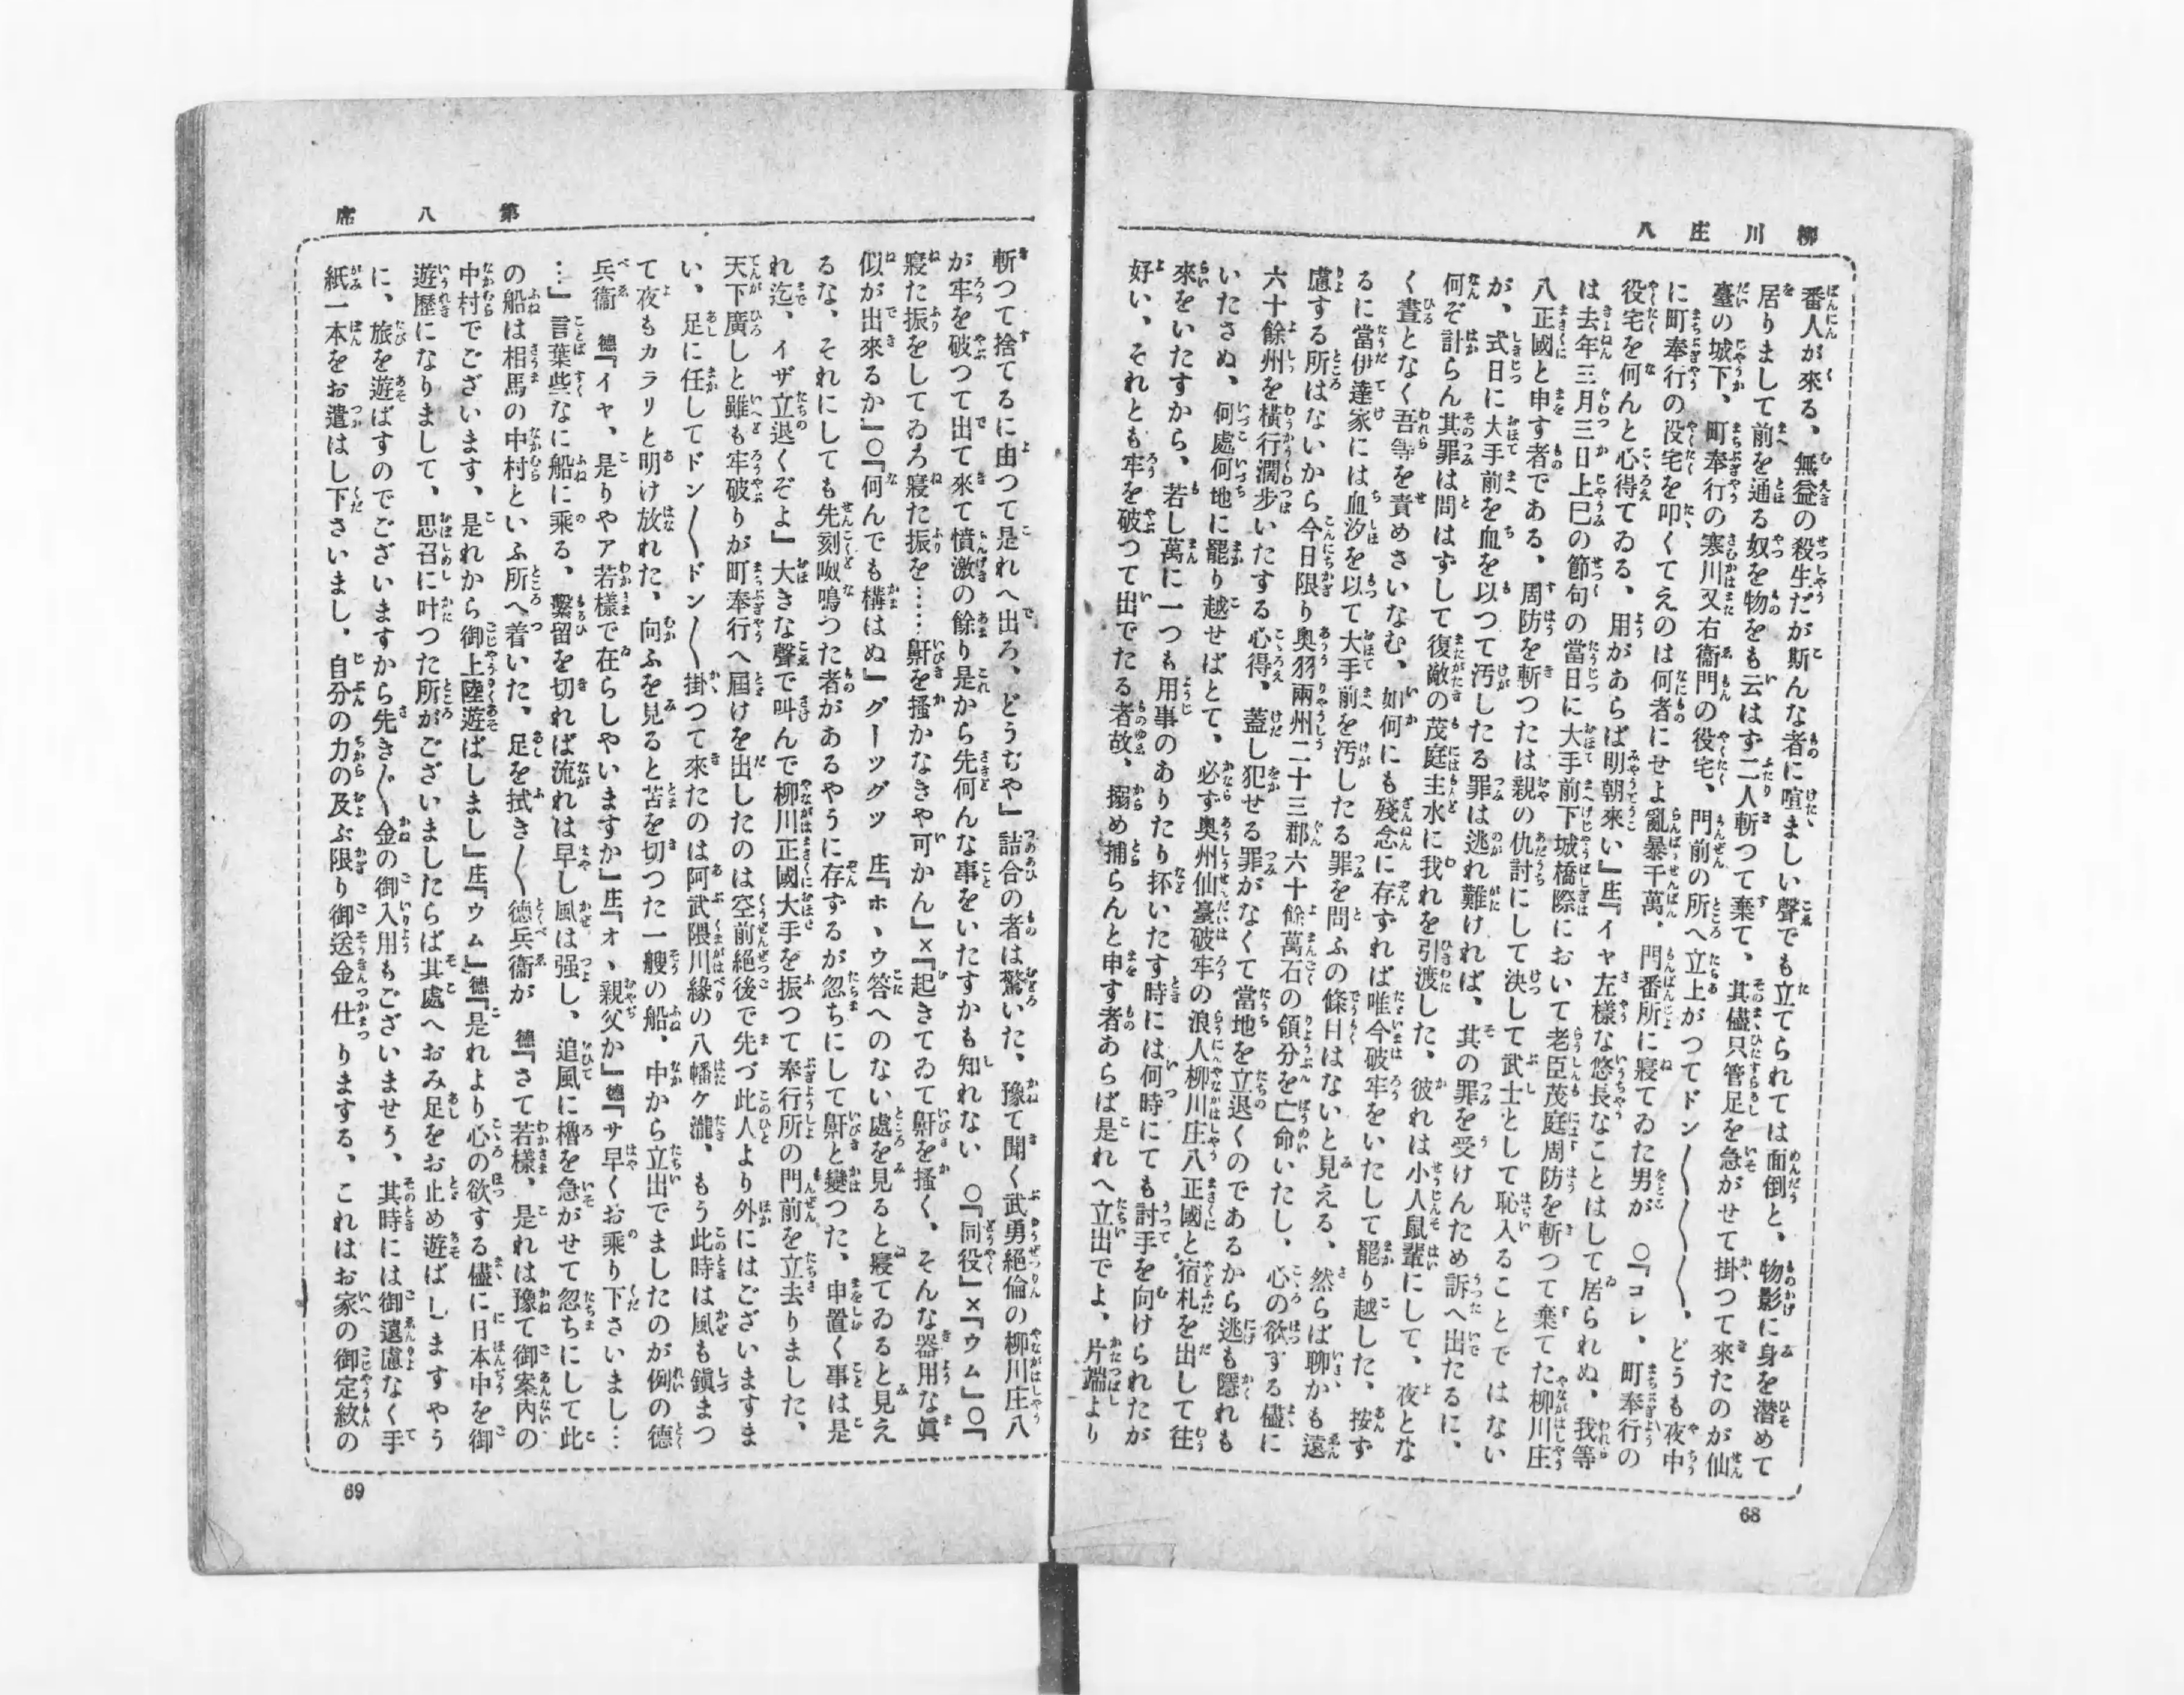 柳川庄八
番人が來る、無益の殺生だが斯んな者に喧ましい聲でも立てられては面倒と、物影に身を潜めて
居りまして前を通る奴を物をも云はず二人斬つて棄て、其儘只管足を急がせて掛つて來たのが仙
臺の城下、町奉行の寒川又右衞門の役宅、門前の所へ立上がつてドン〳〵〳〵〳〵、どうも夜中
に町奉行の役宅を叩くてえのは何者にせよ亂暴千萬、門番所に寢てゐた男が　〇『コレ、町奉行の
役宅を何んと心得てゐる、用があらば明朝來い』庄『イヤ左樣な悠長なことはして居られぬ、我等
は去年三月三日上巳の節句の當日に大手前下城橋際において老臣茂庭周防を斬つて棄てた柳川庄
八正國と申す者である、周防を斬つたは親の仇討にして決して武士として恥入ることではない
が、式日に大手前を血を以つて汚したる罪は逃れ難ければ、其の罪を受けんため訴へ出たるに、
何ぞ計らん其罪は問はずして復敵の茂庭主水に我れを引渡した、彼れは小人鼠輩にして、夜とな
く晝となく吾等を責めさいなむ、如何にも殘念に存ずれば唯今破牢をいたして罷り越した、按ず
るに當伊達家には血汐を以て大手前を汚したる罪を問ふの條目はないと見える、然らば聊かも遠
慮する所はないから今日限り奥羽兩州二十三郡六十餘萬石の領分を亡命いたし、心の欲する儘に
六十餘州を橫行濶歩いたする心得、蓋し犯せる罪がなくて當地を立退くのであるから逃も隱れも
いたさぬ、何處何地に罷り越せばとて、必ず奥州仙臺破牢の浪人柳川庄八正國と宿札を出して往
來をいたすから、若し萬に一つも用事のありたり抔いたす時には何時にても討手を向けられたが
好い、それとも牢を破つて出でたる者故、搦め捕らんと申す者あらば是れへ立出でよ、片端より
68
第八席
斬つて捨てるに由つて是れへ出ろ、どうむや』詰合の者は驚いた、豫て聞く武勇絶倫の柳川庄八
が牢を破つて出て來て憤激の餘り是から先何んな事をいたすかも知れない　〇『同役』×『ウム』〇『
寢た振をしてゐろ寢た振を……鼾を搔かなきや可かん』×『起きてゐて鼾を搔く、そんな器用な眞
似が出來るか』〇『何んでも構はぬ』グーッグッ　庄『ホヽウ答へのない處を見ると寢てゐると見え
るな、それにしても先刻呶鳴つた者があるやうに存するが忽ちにして鼾と變つた、申置く事は是
れ迄、イザ立退くぞよ』大きな聲で叫んで柳川正國大手を振つて奉行所の門前を立去りました、
天下廣しと雖も牢破りが町奉行へ屆けを出したのは空前絶後で先づ此人より外にはございますま
い、足に任してドン〳〵ドン〳〵掛つて來たのは阿武隈川緣の八幡ケ瀧、もう此時は風も鎭まつ
て夜もカラリと明け放れた、向ふを見ると苫を切つた一艘の船、中から立出でましたのが例の德
兵衞　德『イヤ、是りやア若樣で在らしやいますか』庄『オヽ親父か』德『サ早くお乘り下さいまし…
…』言葉些なに船に乘る、繫留を切れば流れは早し風は强し、追風に櫓を急がせて忽ちにして此
の船は相馬の中村といふ所へ着いた、足を拭き〳〵德兵衞が　德『さて若樣、是れは豫て御案內の
中村でございます、是れから御上陸遊ばしまし』庄『ウム』德『是れより心の欲する儘に日本中を御
遊歷になりまして、思召に叶つた所がございましたらば其處へおみ足をお止め遊ばしますやう
に、旅を遊ばすのでございますから先き〴〵金の御入用もございませう、其時には御遠慮なく手
紙一本をお遣はし下さいまし、自分の力の及ぶ限り御送金仕りまする、これはお家の御定紋の
69